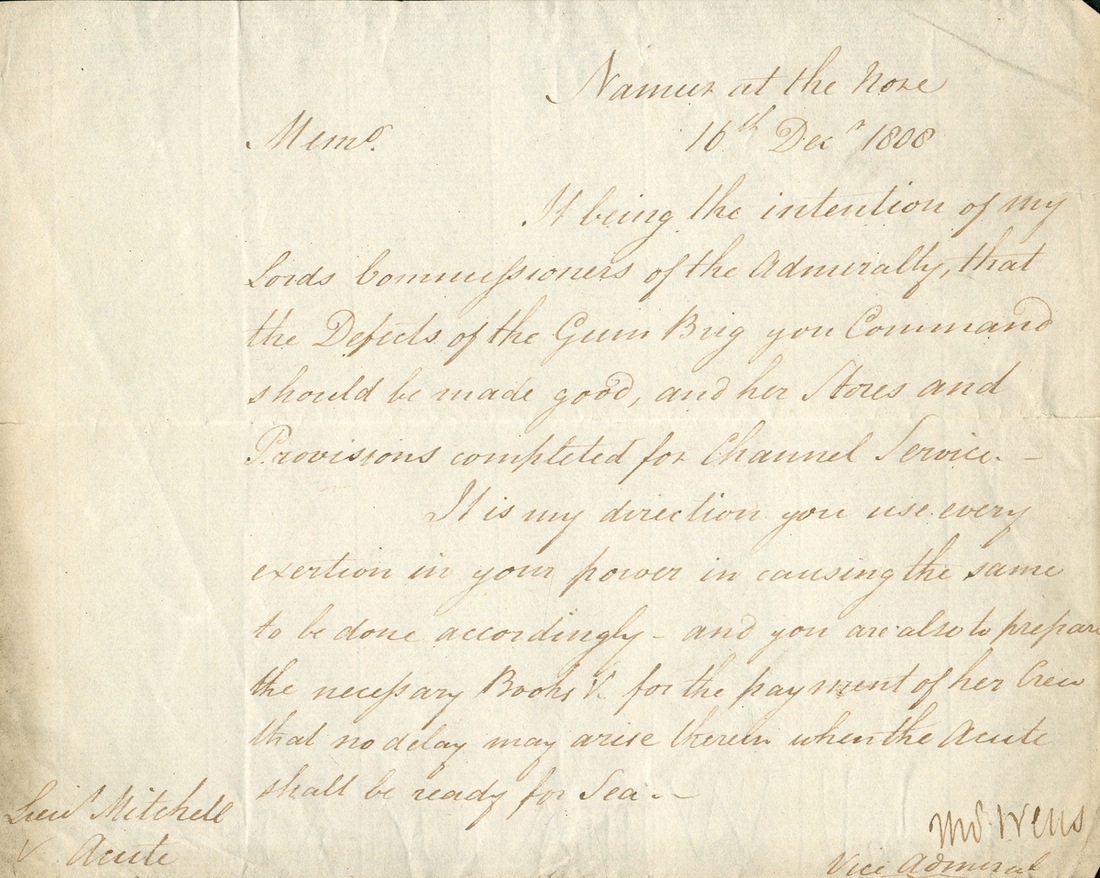 Namur at the Nore
Memo. 16th Decr 1808
It being the intention of my
Lords Commissioners of the Admiralty, that
the Defects of the Gun Brig you Command
should be made good, and her Stores and
Provisions completed for Channel Service. —
It is my direction you use every
exertion in your power in causing the same
to be done accordingly - and you are also to prepare
the necessary Books &c. for the payment of her Crew
that no delay may arise therein when the Acute
shall be ready for Sea. —
Lieut Mitchell
Acute
Wells
Vice Admiral